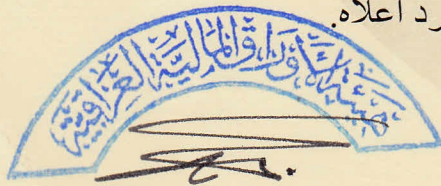 رد اعلاه.
هيئة الاوراق المالية العراقية